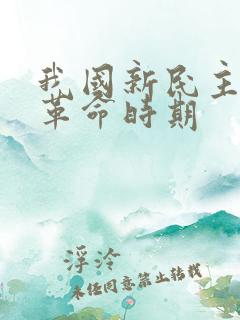 我國新民主
革命時期
浮泠
未经同意禁止转载